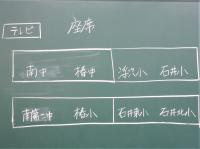 座席
テレビ
南中 椿中 深穴小 石井小
南第二中 椿小 石井東小 石井北小